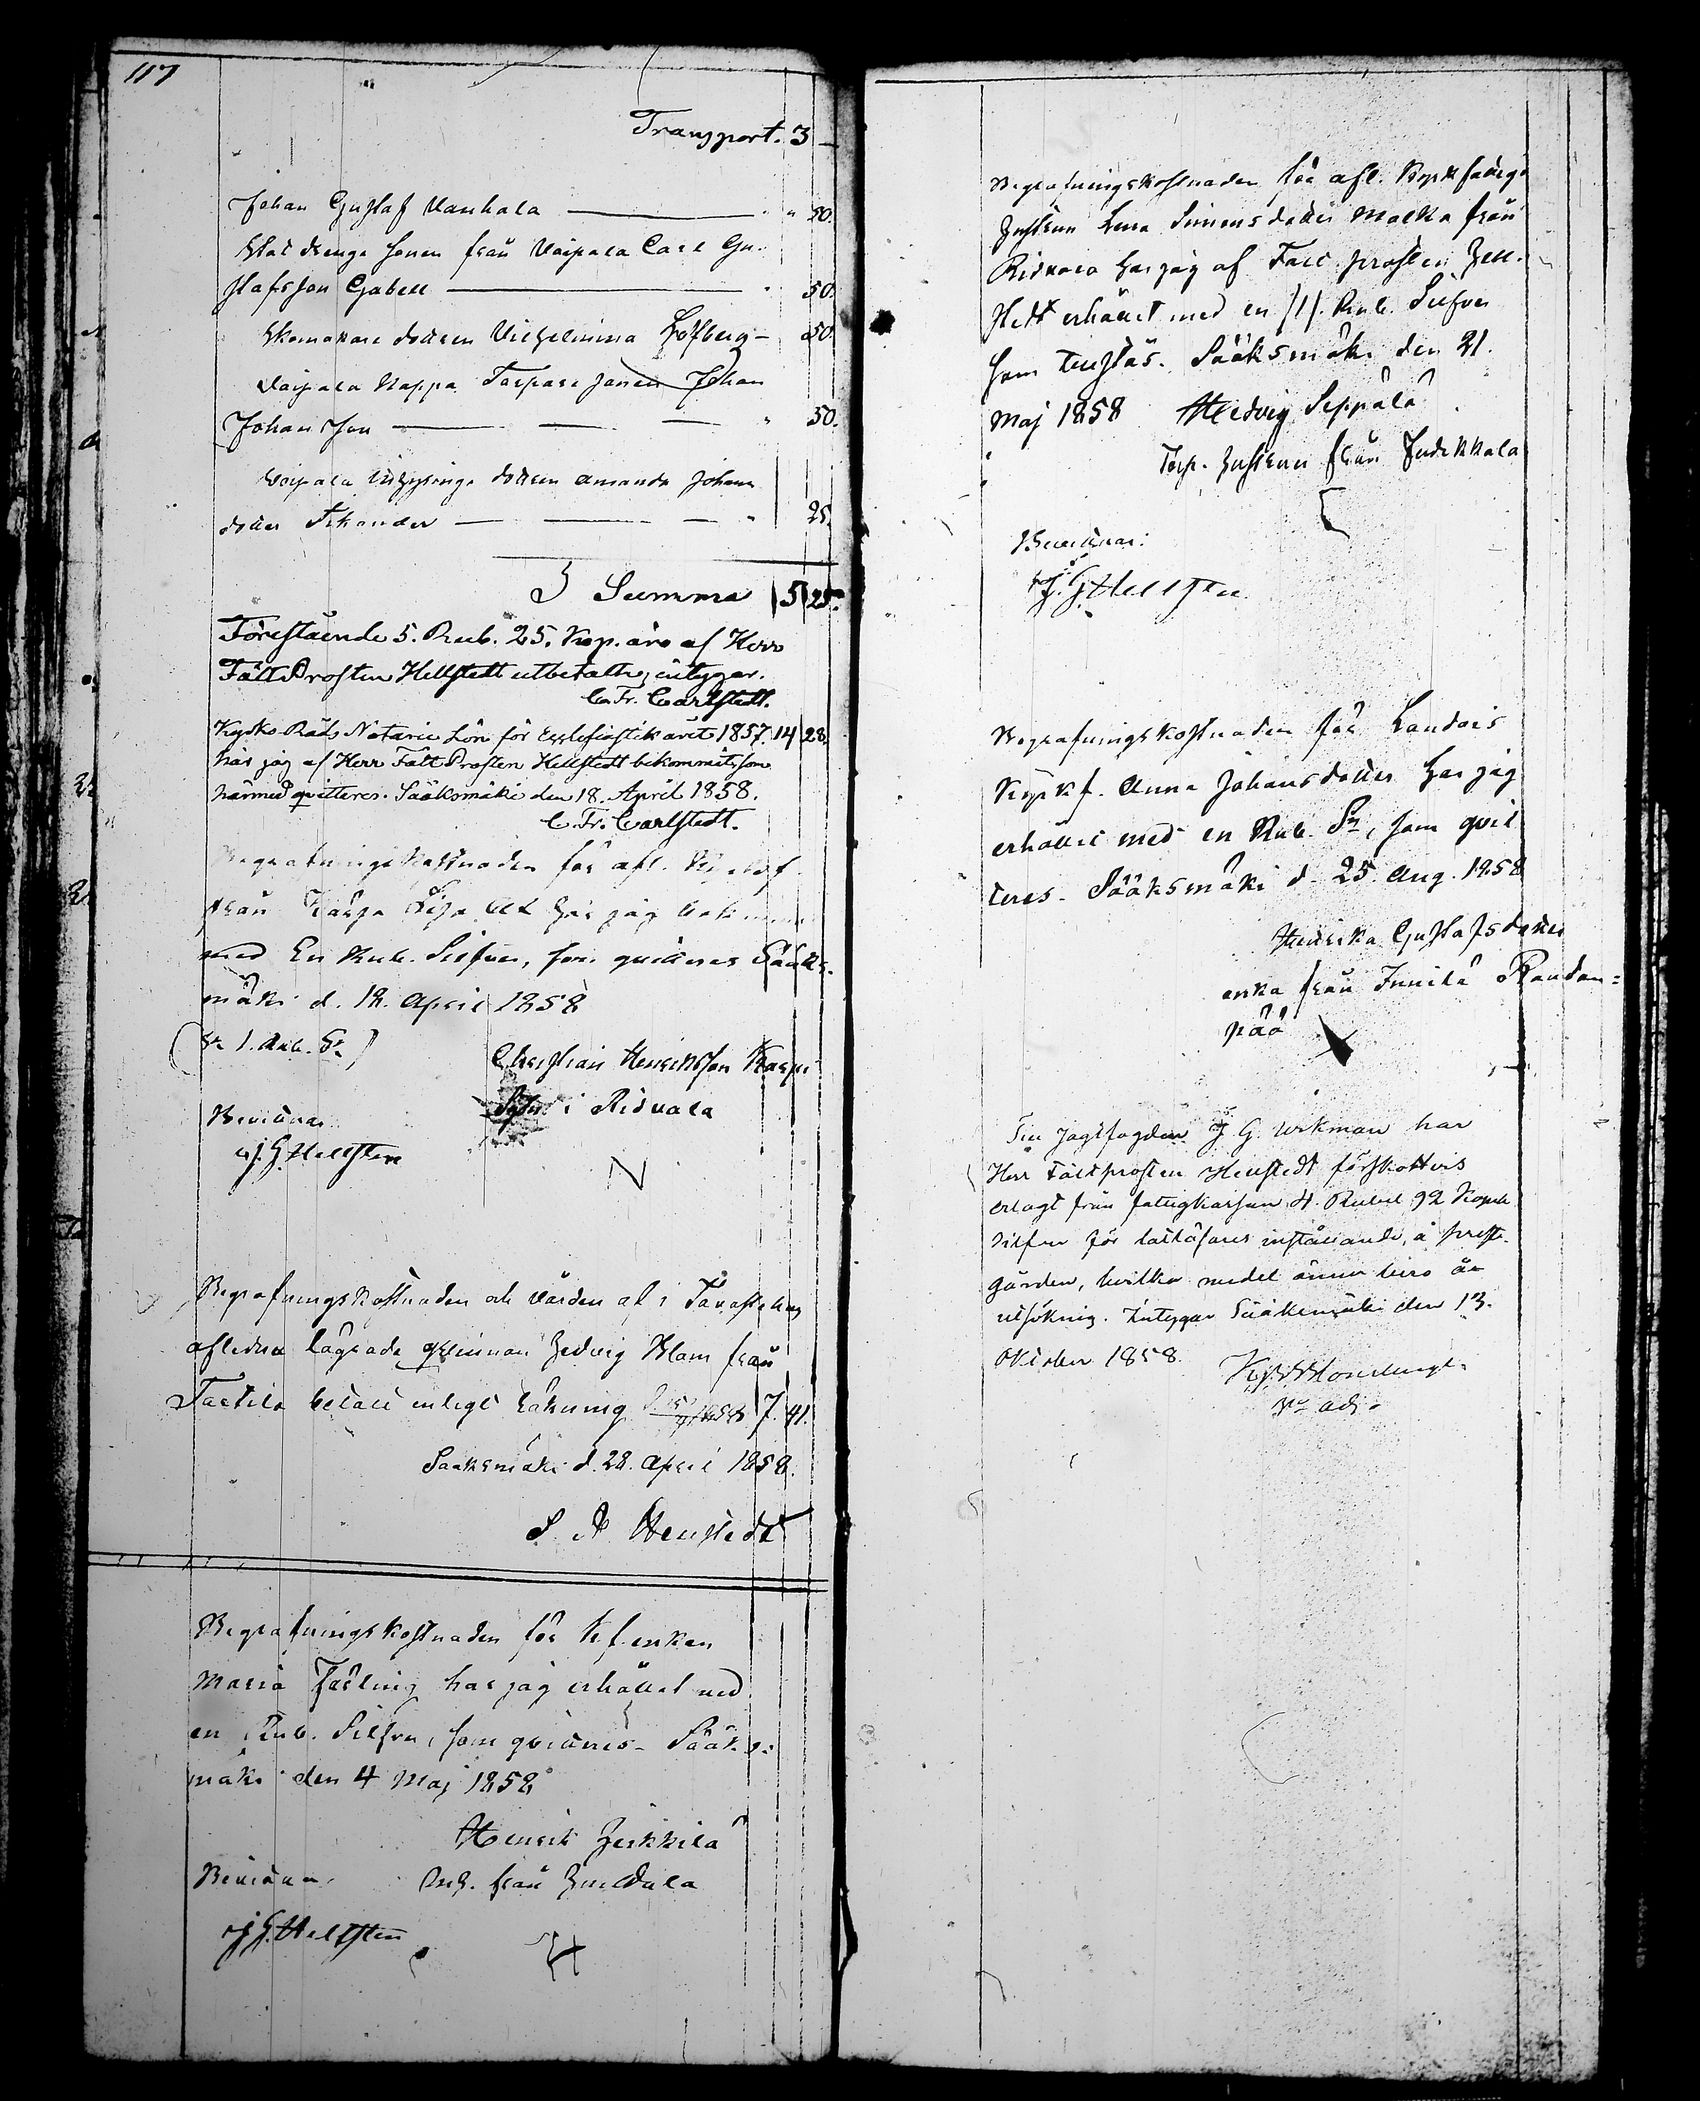 117
Transport. 3 –
Johan Gustaf Vanhala — " 50.
Stat drenge sonen från Voipala Carl Gu-
stafsson Gabell — " 50.
Skomakare dottren Vilhelmina Löfberg – 50.
Voipala Kappa Torpare sonen Johan
Johansson — — — " 50.
Voipala Inhysinge dottren Amanda Johans
dotter Sikander — — — " 25.
Summa 5 25
Förestående 5. Rub. 25. Kop. äro af Herr
FältProsten Hellstedt utbetalte, intygar.
C. Fr. Carlstedt.
Kyrko Råds Notarie Lön för Ecclesiastik året 1857. 14 28.
har jag af Herr Fält Prosten Hellstedt bekommit, som
härmed qvitteras. Sääksmäki den 18. April 1858.
C. Fr. Carlstedt.
Begrafningskostnaden för afl.
från Lisa har jag
med En Rub. Silfver, som qvitteras Sääks-
mäki d. 18. April 1858
1. Rub. Sr
Christian Henriksson
i Ridvala
Bevittnar
J. G. Hellsten
Begrafningskostnaden och vården af i Tavastehus
aflidna lägrade qvinnan Hedvig Blom från
Tarttila betalt enligt Räkning 1858 7. 41.
Sääksmäki d. 28. April 1858.
S. A. Hellstedt
Begrafningskostnaden för K. f. enkan
Maria Färling har jag erhållit med
en Rub. Silfver, som qvitteras – Sääks-
mäki den 4 Maj 1858
Henrik Heikkilä
Bevittnar Inh. från Huittula
J. G. Hellsten
Begrafningskostnaden för afl. Kyrkfattig
hustrun Lena Simonsdotter Malka från
Ridvala har jag af Fält prosten Hell-
stedt erhållit med en /1/. Rub. Silfver
som qvitteras. Sääksmäki den 21.
Maj 1858 Hedvig Seppälä
Torp. hustrun från Judikkala
Bevittnar:
J. G. Hellsten
Begrafningskostnaden för Landois
Kyrkf. Anna Johansdotter har jag
erhållit med en Rub. Sr, som qvit
teras – Sääksmäki d. 25. Aug. 1858
Henrika Gustafsdotter
enka från Innilä Raudan=
pää
Till Jagtfogden J. G. Wikman har
Herr Fältprosten Hellstedt förskottvis
erlagt från fattigkassan 4. Rubel 92 Kopek
Silfver för inställande, å preste-
gården, hvilka medel ännu bero på
utsökning. Intygar Sääksmäki den 13.
Oktober 1858.
adj.